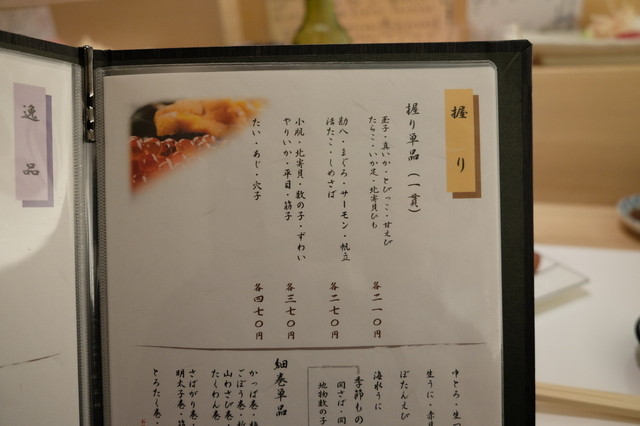 握り
握り単品(一貫)
玉子・真いか・とびっこ・甘えび
たらこ・いか足・北寄貝ひも
各二一〇円
勘八・まぐろ・サーモン・帆立
活たこ・しめさば
各二七〇円
小肌・北寄貝・数の子・ずわい
やりいか・平目・筋子
各三七〇円
たい・あじ・穴子
各四七〇円
中とろ・生つ
生うに・赤貝
ぼたんえび
海水うに
季節もの
同さば・同
地物数の子
細巻単品
かっぱ巻・梅
ごぼう巻・
山わさび巻・
たくわん巻
さばがり巻・
明太子巻・筋
とろたく巻・
逸品